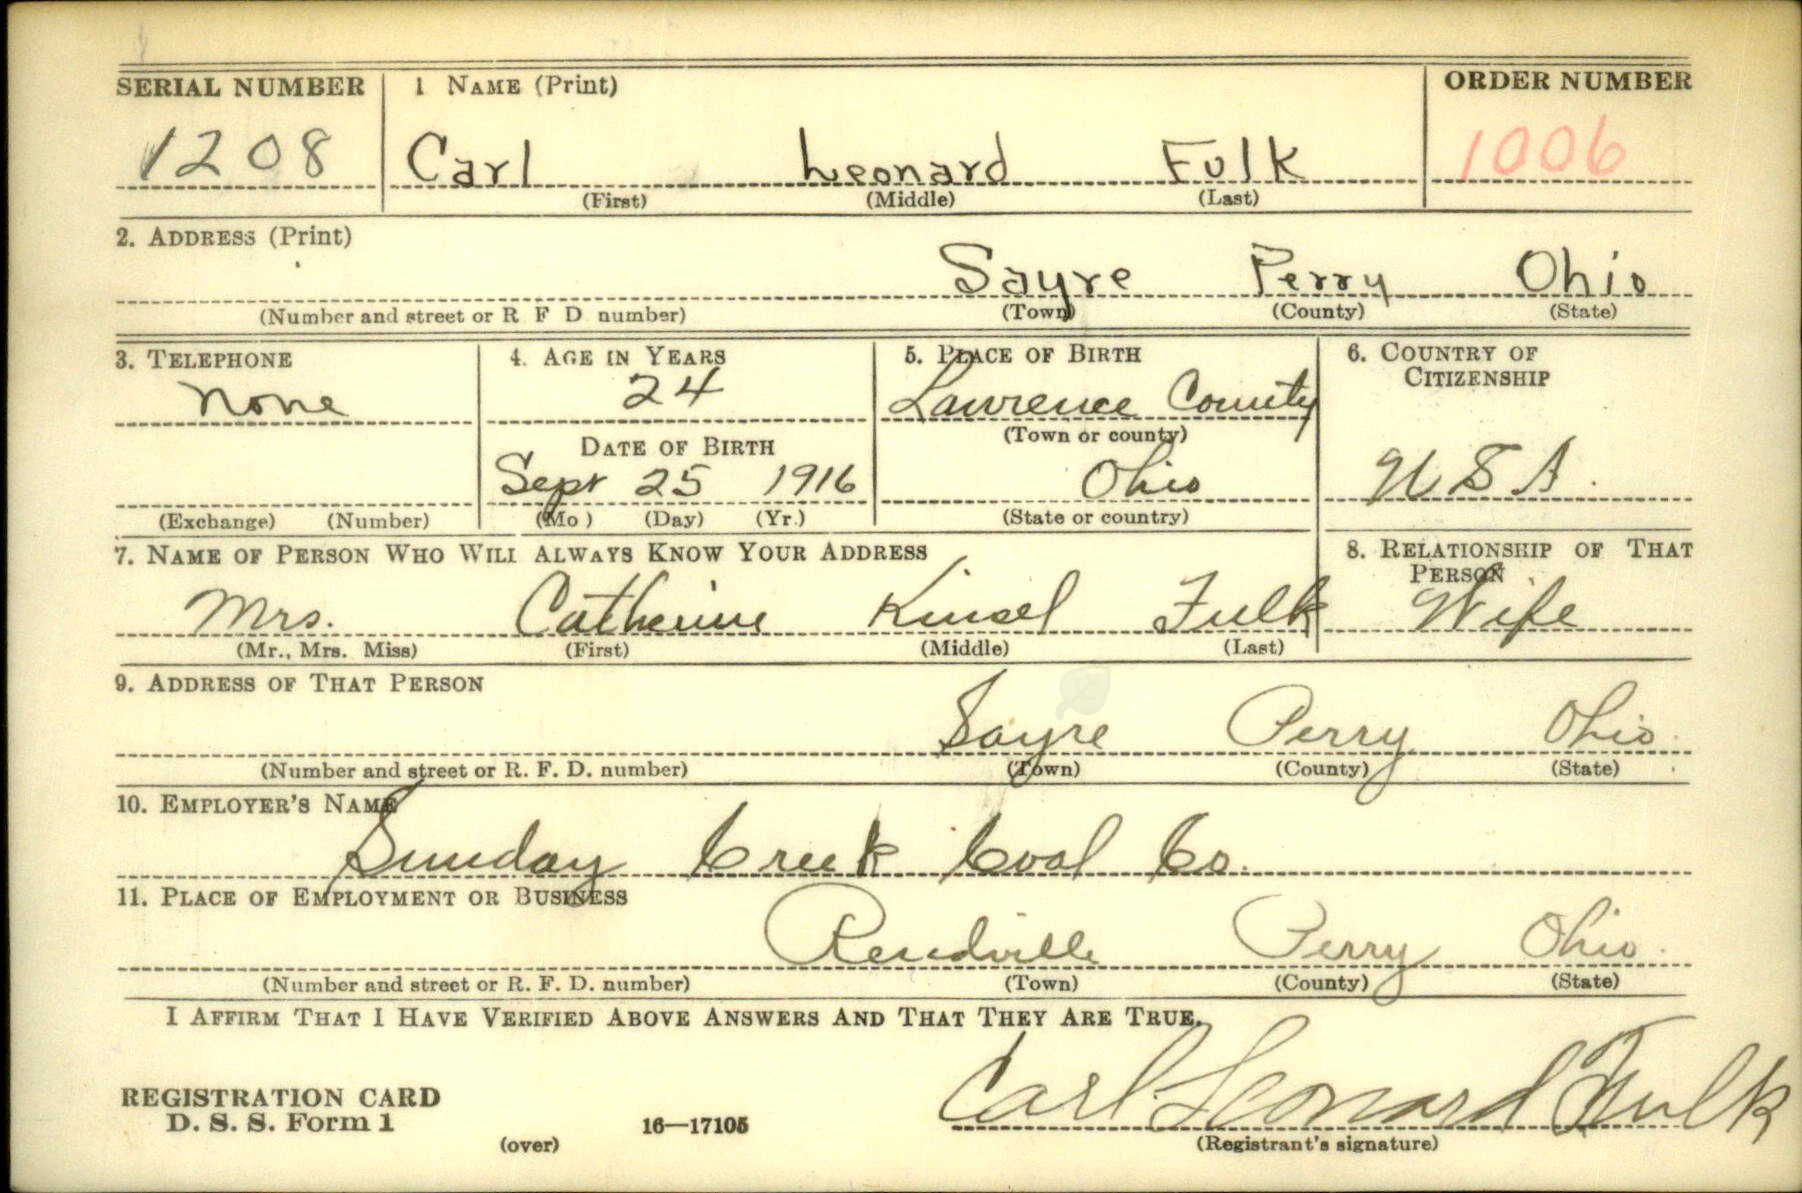 SERIAL NUMBER 1 NAME (Print) ORDER NUMBER
1208 Carl Leonard Fulk 1006
(First) (Middle) (Last)
2. ADDRESS (Print)
Sayre Perry Ohio
(Number and street or R F D number) (Town) (County) (State)
3. TELEPHONE 4. AGE IN YEARS 5. PLACE OF BIRTH 6. COUNTRY OF
CITIZENSHIP
None 24 Lawrence County
(Town or county)
DATE OF BIRTH
Sept 25 1916 Ohio U S A.
(Exchange) (Number) (Mo) (Day) (Yr.) (State or country)
7. NAME OF PERSON WHO WILL ALWAYS KNOW YOUR ADDRESS 8. RELATIONSHIP OF THAT
PERSON
Mrs. Catherine Kinsel Fulk Wife
(Mr., Mrs. Miss) (First) (Middle) (Last)
9. ADDRESS OF THAT PERSON
Sayre Perry Ohio
(Number and street or R. F. D. number) (Town) (County) (State)
10. EMPLOYER'S NAME
Sunday Creek Coal Co.
11. PLACE OF EMPLOYMENT OR BUSINESS
Rendville Perry Ohio
(Number and street or R. F. D. number) (Town) (County) (State)
I AFFIRM THAT I HAVE VERIFIED ABOVE ANSWERS AND THAT THEY ARE TRUE.
Carl Leonard Fulk
REGISTRATION CARD
D. S. S. Form 1 16—17105
(over) (Registrant's signature)